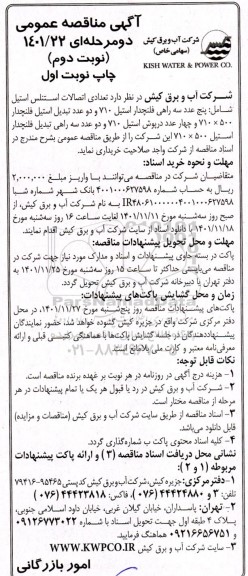 شرکت آب و برق کیش
(سهامی خاص)
KISH WATER & POWER CO.
آگهی مناقصه عمومی
دومرحله‌ای ۱۴۰۱/۲۲
(نوبت دوم)
چاپ نوبت اول
شرکت آب و برق کیش در نظر دارد تعدادی اتصالات استنلس استیل
شامل: پنج عدد سه راهی فلنچدار استیل ۷۱۰ و دو عدد تبدیل استیل فلنچدار
۵۰۰ × ۷۱۰ و چهار عدد درپوش استیل ۷۱۰ و دو عدد سه راهی تبدیل فلنچدار
استیل ۵۰۰ × ۷۱۰ این شرکت را از طریق مناقصه عمومی بشرح مندرج در
اسناد مناقصه از شرکت واجد صلاحیت خریداری نماید.
مهلت و نحوه خرید اسناد:
متقاضیان شرکت در مناقصه می‌توانند با واریز مبلغ ۲,۰۰۰,۰۰۰
ریال به حساب شماره ۴۰۰۱۰۰۰۶۲۷۵۹۸ بانک شهر شماره شبا
به نام شرکت آب و برق کیش، از
صبح روز سه‌شنبه مورخ ۱۴۰۱/۱۱/۱۱ لغایت ساعت ۱۶ روز سه‌شنبه مورخ
۱۴۰۱/۱۱/۱۸ با دانلود اسناد از سایت شرکت آب و برق کیش اقدام نمایند.
مهلت و محل تحویل پیشنهادات مناقصه:
پاکت در بسته حاوی پیشنهادات و اسناد و مدارک مورد نیاز جهت شرکت در
مناقصه می‌بایستی حداکثر تا ساعت ۱۵ روز سه‌شنبه مورخ ۱۴۰۱/۱۱/۲۵ به
دفتر تهران یا دبیرخانه شرکت آب و برق کیش تحویل گردد.
زمان و محل گشایش پاکت‌های پیشنهادات:
پاکت‌های پیشنهادات مناقصه روز پنج‌شنبه مورخ ۱۴۰۱/۱۱/۲۷، در محل
دفتر مرکزی شرکت واقع در جزیره کیش گشوده خواهد شد، حضور نمایندگان
پیشنهاددهندگان در جلسه گشایش پاکت‌ها با هماهنگی کمیسیون قبلی و ارائه
معرفی‌نامه معتبر و کارت ملی بلامانع است.
نکات قابل توجه:
۱ – هزینه درج آگهی در روزنامه در هر نوبت بر عهده برنده مناقصه است.
۲ – شرکت آب و برق کیش در رد یا قبول هر یک یا تمام پیشنهادات در هر
مرحله از مناقصه مختار است.
۳ – اسناد مناقصه از طریق سایت شرکت آب و برق کیش (مناقصات و مزایده)
قابل دانلود می‌باشد.
۴ – کلیه اسناد محتوی پاکت ب شماره‌گذاری گردد.
نشانی محل دریافت اسناد مناقصه (۳) و ارائه پاکت پیشنهادات
مربوطه (۱ و ۲):
۱– دفتر مرکزی: جزیره کیش، شرکت آب و برق کیش کدپستی ۹۵۴۶۵–۷۹۴۱۶
تلفن: ۳ و ۴۴۴۲۴۸۸۰ (۰۷۶)، فاکس: ۴۴۴۲۳۸۱۸ (۰۷۶)
۲– تهران: پاسداران، خیابان گیلان غربی، خیابان داود اسلامی جنوبی،
پلاک ۴ طبقه اول جهت تحویل اسناد با شماره ۰۹۱۲۶۷۷۳۰۲۲
و ۰۹۲۱۶۶۵۶۷۵۱ هماهنگ فرمایید
۳– سایت شرکت آب و برق کیش WWW.KWPCO.IR
امور بازرگانی